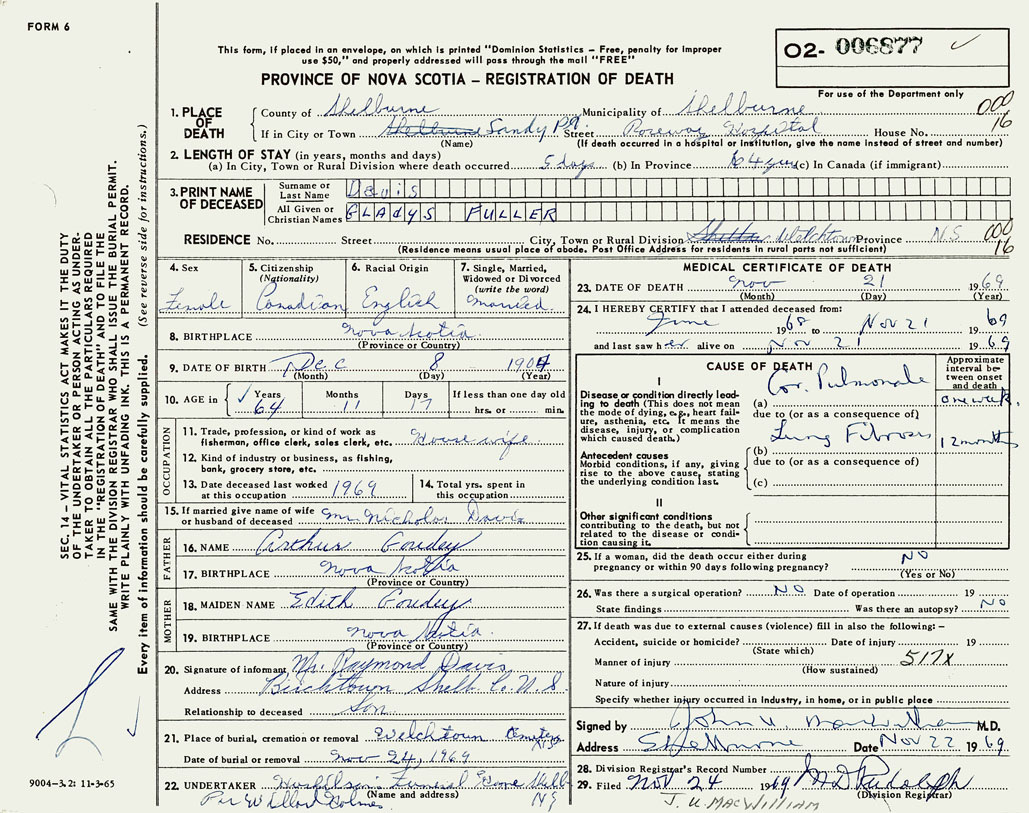 FORM 6
This form, if placed in an envelope, on which is printed "Dominion Statistics – Free, penalty for improper
use $50," and properly addressed will pass through the mail "FREE"
PROVINCE OF NOVA SCOTIA – REGISTRATION OF DEATH
O2- 006877
For use of the Department only
000
16
1. PLACE OF DEATH County of Shelburne Municipality of Shelburne
If in City or Town Shelburne Sandy Pt. Street Roseway Hospital House No.
(Name) (If death occurred in a hospital or institution, give the name instead of street and number)
2. LENGTH OF STAY (in years, months and days)
(a) In City, Town or Rural Division where death occurred 5 days (b) In Province 64 yrs (c) In Canada (if immigrant)
3. PRINT NAME OF DECEASED Surname or Last Name Davis
All Given or Christian Names GLADYS FULLER
RESIDENCE No. Street City, Town or Rural Division Welchtown Province NS
000
16
(Residence means usual place of abode. Post Office Address for residents in rural parts not sufficient)
4. Sex Female
5. Citizenship (Nationality) Canadian
6. Racial Origin English
7. Single, Married, Widowed or Divorced (write the word) Married
8. BIRTHPLACE Nova Scotia
(Province or Country)
9. DATE OF BIRTH Dec 8 1904
(Month) (Day) (Year)
10. AGE in Years 64 Months 11 Days 17 If less than one day old hrs. or min.
OCCUPATION
11. Trade, profession, or kind of work as fisherman, office clerk, sales clerk, etc. House wife
12. Kind of industry or business, as fishing, bank, grocery store, etc.
13. Date deceased last worked at this occupation 1969 14. Total yrs. spent in this occupation
15. If married give name of wife or husband of deceased Mr. Nicholas Davis
FATHER
16. NAME Arthur Goudey
17. BIRTHPLACE Nova Scotia
(Province or Country)
MOTHER
18. MAIDEN NAME Edith Goudey
19. BIRTHPLACE Nova Scotia
(Province or Country)
20. Signature of informant Mr. Raymond Davis
Address Birchtown Shelb. Co. N.S.
Relationship to deceased Son
21. Place of burial, cremation or removal Welchtown Cemetery
Date of burial or removal Nov 24, 1969
22. UNDERTAKER Funeral Home Shelb NS
(Name and address)
Per Willard Holmes
MEDICAL CERTIFICATE OF DEATH
23. DATE OF DEATH Nov 21 1969
(Month) (Day) (Year)
24. I HEREBY CERTIFY that I attended deceased from:
June 1968 to Nov 21 1969
and last saw her alive on Nov 21 1969
CAUSE OF DEATH
Approximate interval between onset and death
I
Disease or condition directly leading to death (This does not mean the mode of dying, e.g., heart failure, asthenia, etc. It means the disease, injury, or complication which caused death.)
(a) Cor Pulmonale one week
due to (or as a consequence of)
Antecedent causes
Morbid conditions, if any, giving rise to the above cause, stating the underlying condition last.
(b) Lung Fibrosis 12 months
due to (or as a consequence of)
(c)
II
Other significant conditions contributing to the death, but not related to the disease or condition causing it.
25. If a woman, did the death occur either during pregnancy or within 90 days following pregnancy? NO
(Yes or No)
26. Was there a surgical operation? NO Date of operation 19
State findings Was there an autopsy? NO
27. If death was due to external causes (violence) fill in also the following: –
Accident, suicide or homicide? Date of injury 19
(State which)
Manner of injury 517X
(How sustained)
Nature of injury
Specify whether injury occurred in Industry, in home, or in public place
Signed by John U. M.D.
Address Shelburne Date Nov 22 1969
28. Division Registrar's Record Number
29. Filed Nov 24 1969 Rudolph
(Division Registrar)
J. U. MACWILLIAM
SEC. 14 – VITAL STATISTICS ACT MAKES IT THE DUTY
OF THE UNDERTAKER OR PERSON ACTING AS UNDER-
TAKER TO OBTAIN ALL THE PARTICULARS REQUIRED
IN THE "REGISTRATION OF DEATH" AND TO FILE THE
SAME WITH THE DIVISION REGISTRAR WHO SHALL ISSUE THE BURIAL PERMIT.
WRITE PLAINLY WITH UNFADING INK. THIS IS A PERMANENT RECORD.
Every item of information should be carefully supplied. (See reverse side for instructions.)
9004–3.2: 11-3-65